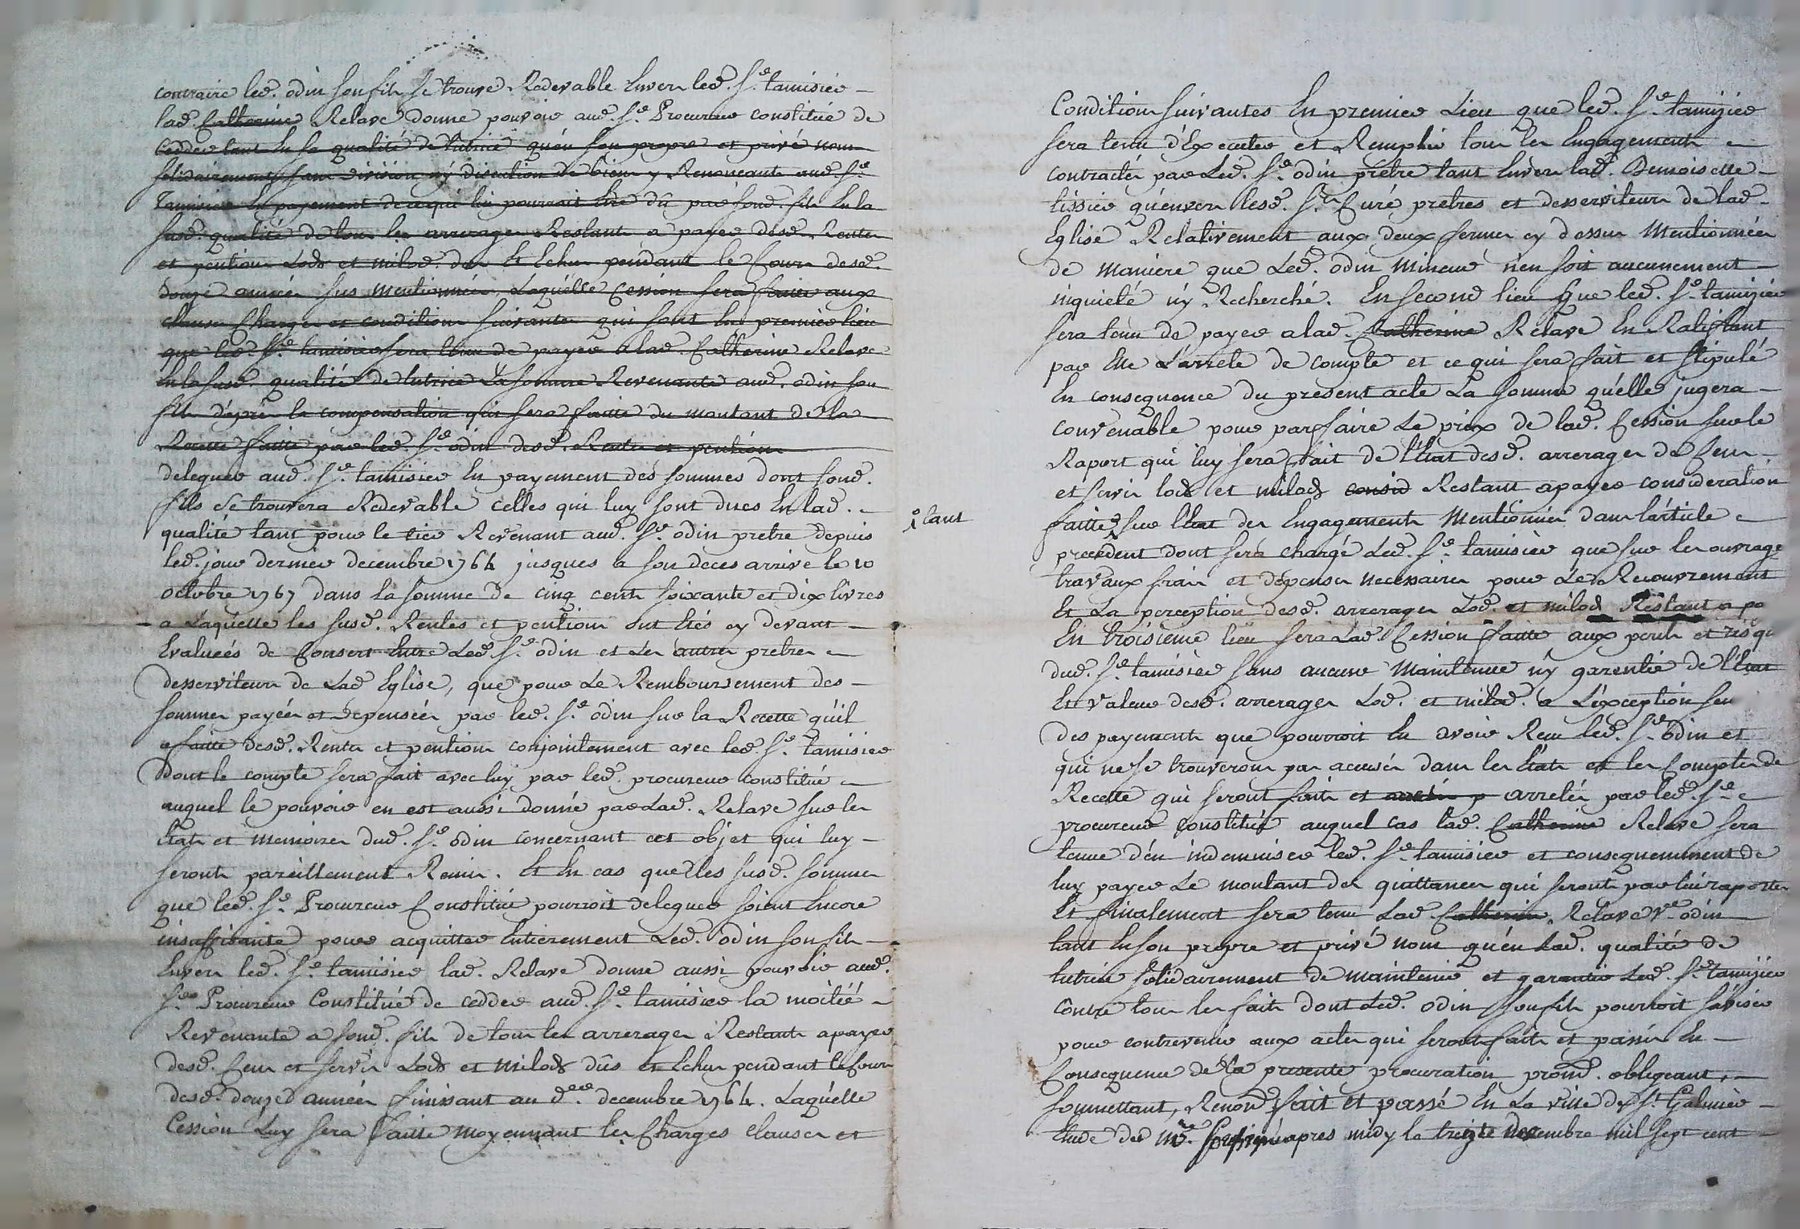 contraire led. odin son fils se trouve Redevable Envers led. Sr. tamisier
lad. Catherine Relave donne pouvoir aud. Sr. Procureur constitué de
cedder tant En sa qualité de tutrice qu'en son propre et privé nom
solidairement sans division n'y discution de biens y Renonceant aud. Sr.
Tamisier En payement de ce qui lui pourroit Etre dû par sond. fils En la
susd. qualité de tous les arrerages Restant a payer desd. Rentes
et pentions Lods et milods dus Et Echus pendant le Cours desd.
douze années sus mentionnées Laquelle Cession sera faitte aux
clauses Charges et conditions suivantes qui sont En premier lieu
que led. Sr. tamisier sera tenu de payer a lad. Catherine Relave
En la susd. qualité de tutrice La somme Revenante aud. odin son
fils d'après la compensation qui sera faitte du montant de la
Recette faitte par led. Sr. odin desd. Rentes et pentions
deleguer aud. Sr. tamisier En payement des sommes dont sond.
fils se trouvera Redevable celles qui luy sont dues En lad.
qualité tant pour le tier Revenant aud. Sr. odin pretre depuis
led. jour dernier decembre 1764 jusques a son deces arrivé le 10
octobre 1767 dans la somme de cinq cents soixante et dix livres
a Laquelle les susd. Rentes et pentions ont étés cy devant
Evaluées de Consert Entre Led. Sr. odin et Les autres pretres
desserviteurs de Lad. Eglise, que pour Le Remboursement des
sommes payées et depensées par led. Sr. odin sur la Recette qu'il
a faitte desd. Rentes et pentions conjointement avec led. Sr. tamisier
Dont le compte sera fait avec luy par led. procureur constitué
auquel le pouvoir en est aussi donné par Lad. Relave sur les
Etats et memoires dud. Sr. odin concernant cet objet qui luy
seront pareillement Remis. Et En cas que les susd. sommes
que led. Sr. Procureur Constitué pourroit deleguer soient Encore
insuffisante pour acquitter Entierement Led. odin son fils
Envers led. Sr. tamisier lad. Relave donne aussi pouvoir aud.
Sr. Procureur Constitué de cedder aud. Sr. tamisier la moitié
Revenante a sond. fils de tous les arrerages Restants a payer
desd. Cens et servis Lods et milods dûs et Echus pendant le Cours
desd. douze années finissant au der. decembre 1764. Laquelle
Cession Luy sera faitte moyennant les Charges clauses et
tant
Conditions suivantes En premier Lieu que led. Sr. tamizier
sera tenu d'Executer et Remplir tous les Engagements
contractés par Led. Sr. odin pretre tant Envers lad. Demoiselle
tissier qu'envers lesd. Srs. Curé pretres et desserviteurs de lad.
Eglise Relativement aux deux fermes cy dessus Mentionnées
de maniere que Led. odin Mineur n'en soit aucunement
inquieté n'y Recherché. En second lieu que led. Sr. tamizier
sera tenu de payer a lad. Catherine Relave En Ratifiant
par Elle L'arreté de compte et ce qui sera fait et stipulé
En consequence du present acte La somme qu'elle jugera
convenable pour parfaire Le prix de lad. Cession sur le
Raport qui luy sera fait de l'Etat desd. arrerages de Cens
et servis lods et milods consid Restant a payer consideration
faitte sur l'Etat des Engagements Mentionnés dans l'article
precedent dont sera chargé Led. Sr. tamisier que sur les ouvrage
travaux frais et depenses necessaires pour Le Recouvrement
Et La perception desd. arrerages Lod. et milods Restant a pa
En troisieme lieu sera Lad. Cession faitte aux perils et risq
dud. Sr. tamisier sans aucune Maintenue n'y garentie de l'Etat
Et valeur desd. arrerages Lod. et milod. a L'exception seu
des payements que pourroit En avoir Reçu led. Sr. odin et
qui ne se trouveront pas accusés dans les Etats et les Comptes de
Recette qui seront faits et arretés par led. Sr.
procureur constitué auquel cas lad. Catherine Relave sera
tenue d'en indemniser led. Sr. tamisier et consequemment de
luy payer Le montant des quittances qui seront par lui raportes
Et finalement sera tenu Lad. Catherine Relave Ve. odin
tant En son propre et privé nom qu'en Lad. qualité de
tutrice solidairement de maintenir et garantir Led. Sr. tamizier
contre tous les faits dont Led. odin son fils pourroit s'aviser
pour contrevenir aux actes qui seront faits et passés En
Consequence de La presente procuration promd. obligeant,
soumettant, Renond. fait et passé En La ville de St. Galmier
Etude de Me. Soussigné apres midy le treize decembre mil sept cent